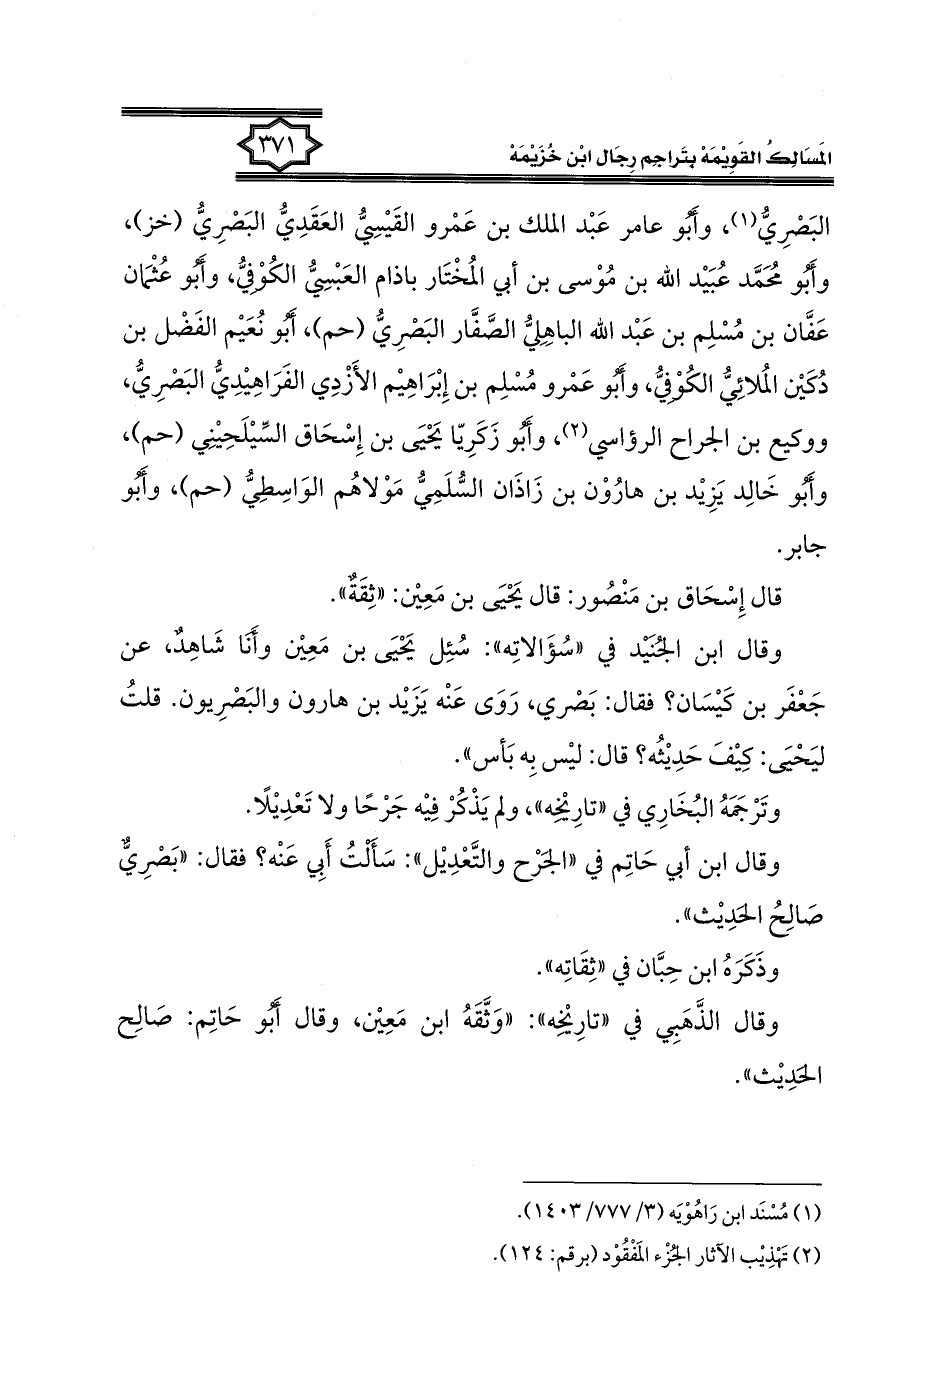 المَسَالِكُ القَوِيْمَهْ بِتَرَاجِمِ رِجَال ابْن خُزَيْمَهْ
٣٧١
البَصْرِيُّ(١)، وأَبُو عامر عَبْد الملك بن عَمْرو القَيْسِيُّ العَقَدِيُّ البَصْرِيُّ (خز)،
وأَبُو مُحَمَّد عُبَيْد الله بن مُوْسى بن أبي المُخْتَار باذام العَبْسِيُّ الكُوْفِيُّ، وأَبُو عُثْمَان
عَفَّان بن مُسْلِم بن عَبْد الله الباهِلِيُّ الصَّفَّار البَصْرِيُّ (حم)، أَبُو نُعَيْم الفَضْل بن
دُكَيْن المُلائِيُّ الكُوْفِيُّ، وأَبُو عَمْرو مُسْلِم بن إِبْرَاهِيْم الأَزْدِي الفَرَاهِيْدِيُّ البَصْرِيُّ،
ووكيع بن الجراح الرؤاسي(٢)، وأَبُو زَكَرِيّا يَحْيَى بن إِسْحَاق السِّيْلَحِيْنِي (حم)،
وأَبُو خَالِد يَزِيْد بن هارُوْن بن زَاذَان السُّلَمِيُّ مَوْلاهُم الوَاسِطِيُّ (حم)، وأَبُو
جابر.
قال إِسْحَاق بن مَنْصُور: قال يَحْيَى بن مَعِيْن: «ثِقَةٌ».
وقال ابن الجُنَيْد في «سُؤَالاتِه»: سُئِل يَحْيَى بن مَعِيْن وأَنَا شَاهِدٌ، عن
جَعْفَر بن كَيْسَان؟ فقال: بَصْرِي، رَوَى عَنْه يَزِيْد بن هارون والبَصْرِيون. قلتُ
ليَحْيَى: كِيْفَ حَدِيْثُه؟ قال: لَيْس بِه بَأس».
وتَرْجَمَهُ البُخَارِي في «تارِيْخِه»، ولم يَذْكُرْ فِيْه جَرْحًا ولا تَعْدِيْلًا.
وقال ابن أبي حَاتِم في «الجَرْح والتَّعْدِيْل»: سَأَلْتُ أَبِي عَنْه؟ فقال: «بَصْرِيٌّ
صَالِحُ الحَدِيْث».
وذَكَرَهُ ابن حِبَّان في «ثِقَاتِه».
وقال الذَّهَبِي في «تارِيْخِه»: «وَثَّقَهُ ابن مَعِيْن، وقال أَبُو حَاتِم: صَالِح
الحَدِيْث».
(١) مُسْنَد ابن رَاهُوْيَه (٣/ ٧٧٧/ ١٤٠٣).
(٢) تَهْذِيْب الآثار الجُزْء المَفْقُوْد (برقم: ١٢٤).